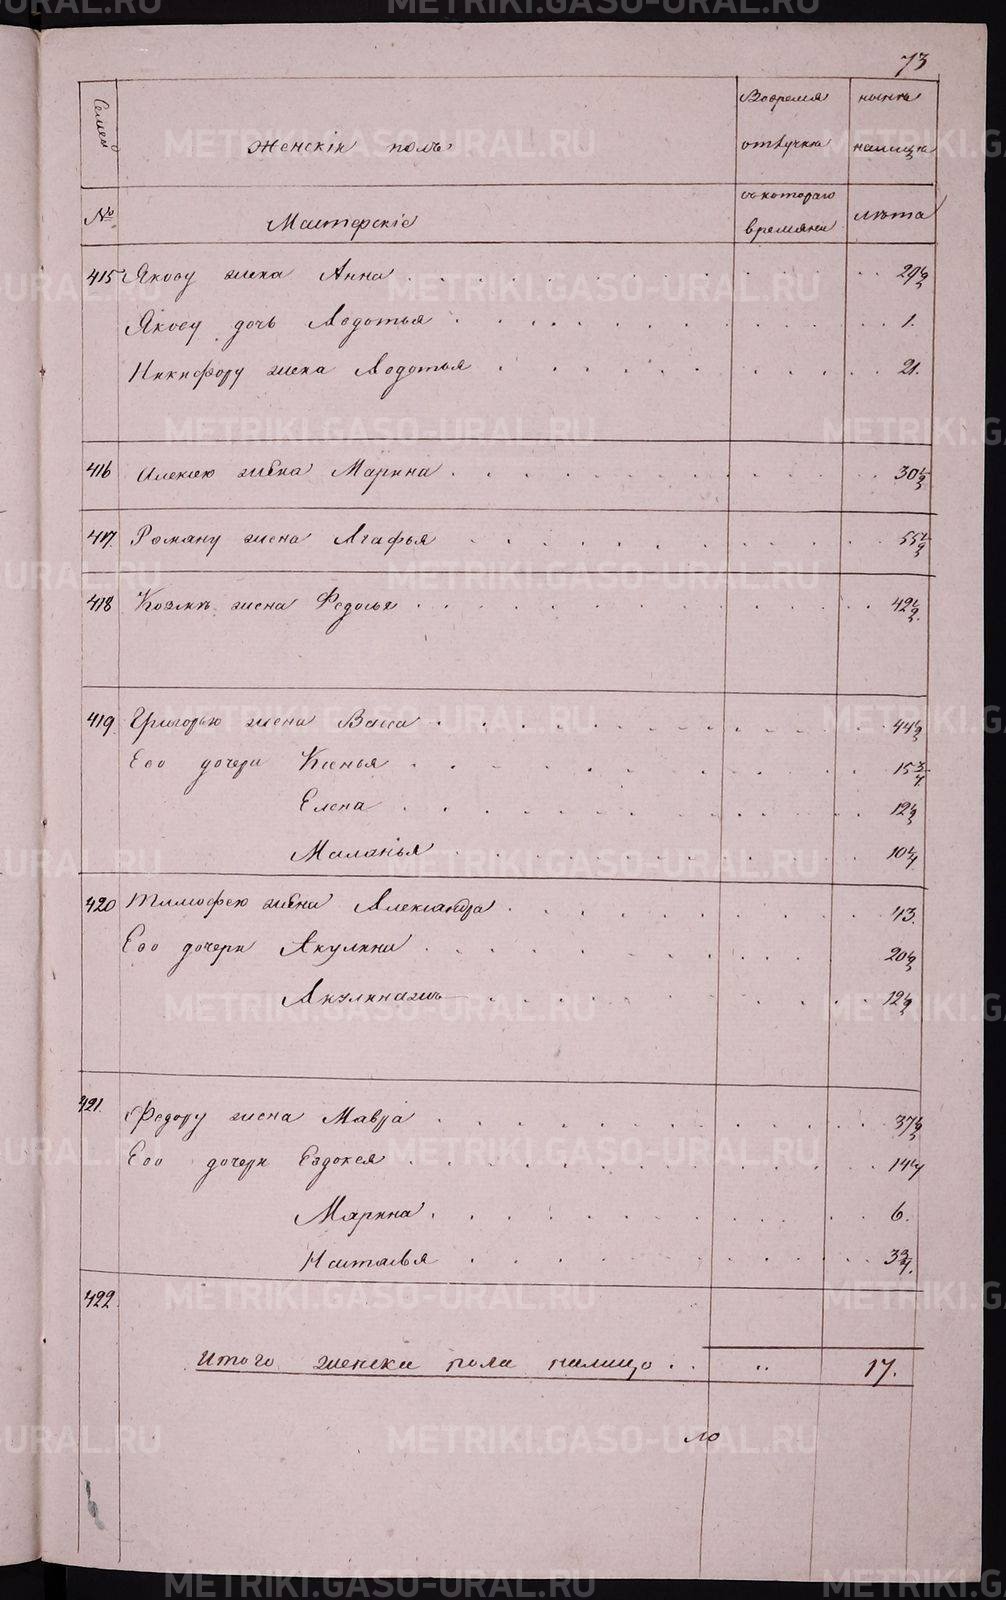 73
Семей
Женскiй полъ
Вовремя
нынѣ
отлучки
налицо
№
Мастерскiе
съкотораго
времяни
лѣта
415 Якову жена Анна 29½
Якову дочь Авдотья 1.
Никифору жена Авдотья 21.
416 Алексею жена Марина 30½
417. Роману жена Агафья 55½
418 Козмѣ жена Федосья 42½.
419. Григорью жена Васса 44½
Ево дочери Ксенья 15¾.
Елена 12½
Маланья 10¼
420 Тимофею жена Александра 43.
Ево дочери Акулина 20½
Акулинажъ 12½
421. Федору жена Мавра 37½
Ево дочери Евдокея 14¼
Марина 6.
Наталья 3¾.
422.
Итого женска пола налицо .. „ 17.
по
METRIKI.GASO-URAL.RU